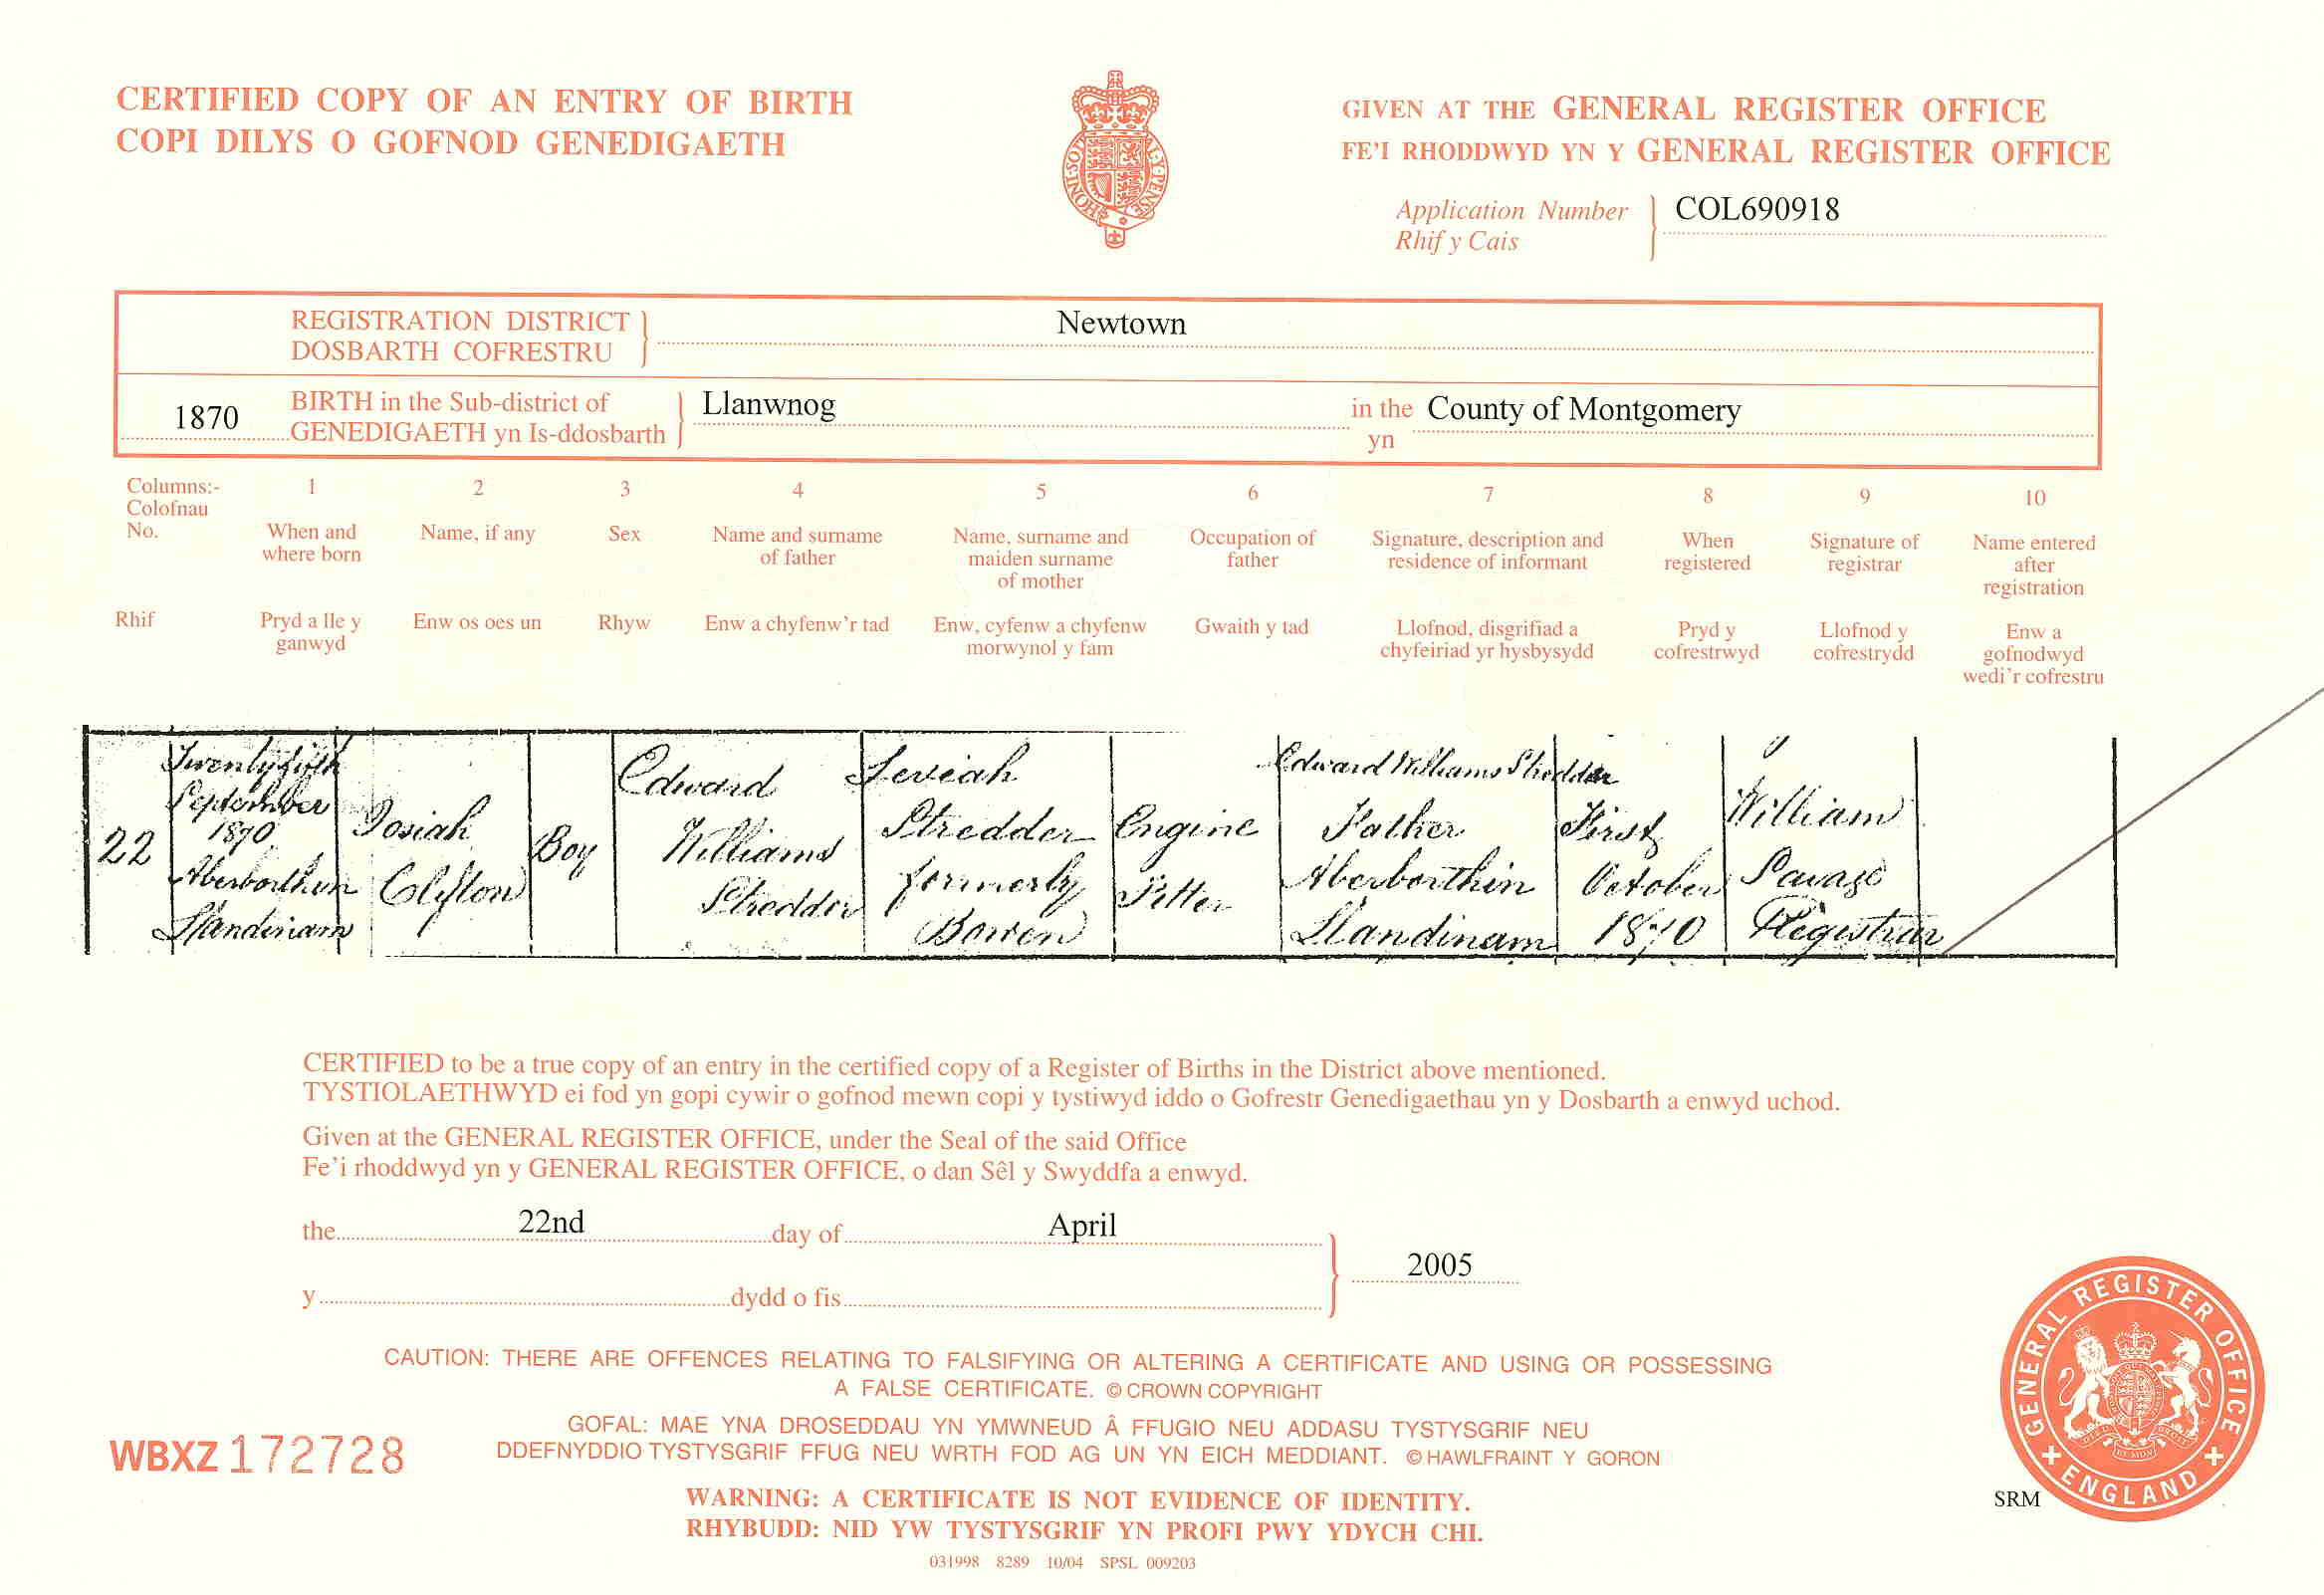 CERTIFIED COPY OF AN ENTRY OF BIRTH
COPI DILYS O GOFNOD GENEDIGAETH
GIVEN AT THE GENERAL REGISTER OFFICE
FE'I RHODDWYD YN Y GENERAL REGISTER OFFICE
Application Number COL690918
Rhif y Cais
REGISTRATION DISTRICT Newtown
DOSBARTH COFRESTRU
1870 BIRTH in the Sub-district of Llanwnog in the County of Montgomery
GENEDIGAETH yn Is-ddosbarth yn
Columns:- 1 2 3 4 5 6 7 8 9 10
Colofnau
No. When and where born Name, if any Sex Name and surname of father Name, surname and maiden surname of mother Occupation of father Signature, description and residence of informant When registered Signature of registrar Name entered after registration
Rhif Pryd a lle y ganwyd Enw os oes un Rhyw Enw a chyfenw'r tad Enw, cyfenw a chyfenw morwynol y fam Gwaith y tad Llofnod, disgrifiad a chyfeiriad yr hysbysydd Pryd y cofrestrwyd Llofnod y cofrestrydd Enw a gofnodwyd wedi'r cofrestru
22
Twenty fifth
September
1870
Aberborthin
Llandinam
Josiah
Clifton
Boy
Edward
Williams
Stredder
Stredder
formerly
Bowen
Engine
Fitter
Edward Williams Stredder
Father
Aberborthin
Llandinam
First
October
1870
William
Savage
Registrar
CERTIFIED to be a true copy of an entry in the certified copy of a Register of Births in the District above mentioned.
TYSTIOLAETHWYD ei fod yn gopi cywir o gofnod mewn copi y tystiwyd iddo o Gofrestr Genedigaethau yn y Dosbarth a enwyd uchod.
Given at the GENERAL REGISTER OFFICE, under the Seal of the said Office
Fe'i rhoddwyd yn y GENERAL REGISTER OFFICE, o dan Sêl y Swyddfa a enwyd.
the 22nd day of April 2005
y dydd o fis
CAUTION: THERE ARE OFFENCES RELATING TO FALSIFYING OR ALTERING A CERTIFICATE AND USING OR POSSESSING
A FALSE CERTIFICATE. © CROWN COPYRIGHT
GOFAL: MAE YNA DROSEDDAU YN YMWNEUD Â FFUGIO NEU ADDASU TYSTYSGRIF NEU
DDEFNYDDIO TYSTYSGRIF FFUG NEU WRTH FOD AG UN YN EICH MEDDIANT. © HAWLFRAINT Y GORON
WBXZ 172728
WARNING: A CERTIFICATE IS NOT EVIDENCE OF IDENTITY.
RHYBUDD: NID YW TYSTYSGRIF YN PROFI PWY YDYCH CHI.
031998 8289 10/04 SPSL 009203
SRM
GENERAL REGISTER OFFICE
ENGLAND